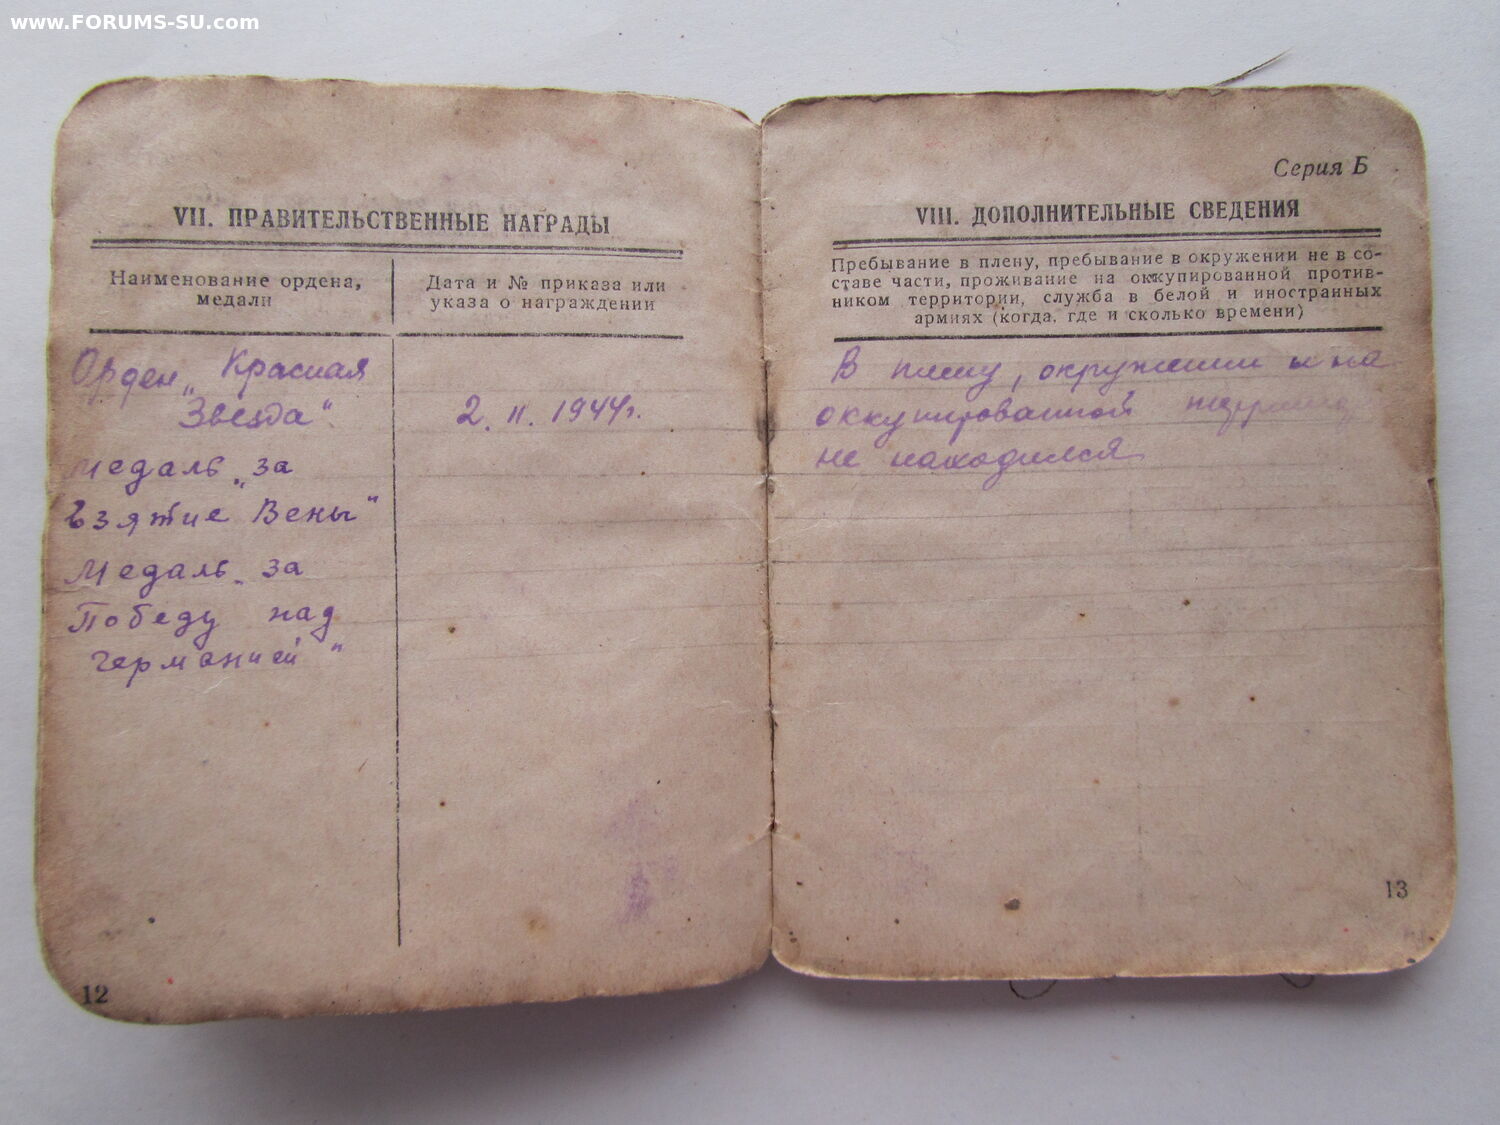 www.FORUMS-SU.com
VII. ПРАВИТЕЛЬСТВЕННЫЕ НАГРАДЫ
Наименование ордена,
медали
Дата и № приказа или
указа о награждении
Орден „Красная
Звезда".
2. II. 1944г.
Медаль „за
взятие Вены"
Медаль „за
Победу над
германией"
12
Серия Б
VIII. ДОПОЛНИТЕЛЬНЫЕ СВЕДЕНИЯ
Пребывание в плену, пребывание в окружении не в со-
ставе части, проживание на оккупированной против-
ником территории, служба в белой и иностранных
армиях (когда, где и сколько времени)
В плену, окружении и на
оккупированной
не находился
13